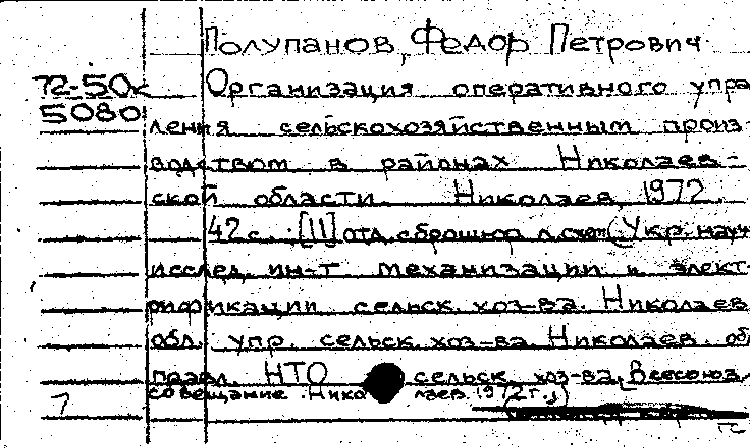 Полупанов, Федор Петрович
72-50к Организация оперативного упра
5080 ления сельскохозяйственным произ-
водством в районах Николаев-
ской области. Николаев, 1972.
42 с.; [11] отд. сброшюр. л. схем. (Укр. науч.
исслед. ин-т механизации и элект
рификации сельск. хоз-ва. Николаев
обл. упр. сельск. хоз-ва. Николаев. об
правл. НТО сельск. хоз-ва, Всесоюз.
совещание. Николаев. 1972 г.)